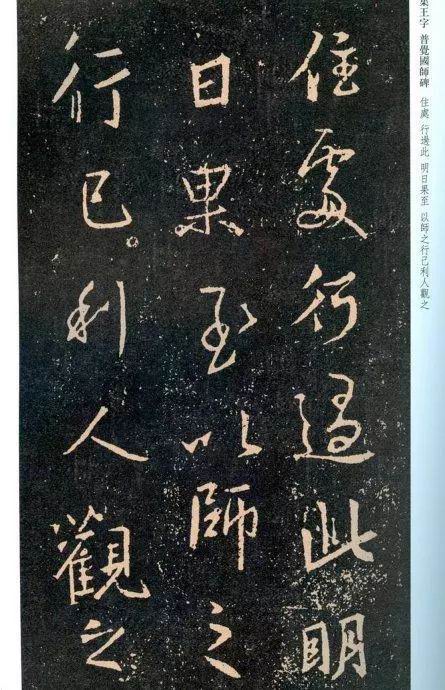 集王字 普覺國師碑 住處 行過此 明日果至 以師之行己利人觀之
住處行過此明
日果至以師之
行己利人觀之